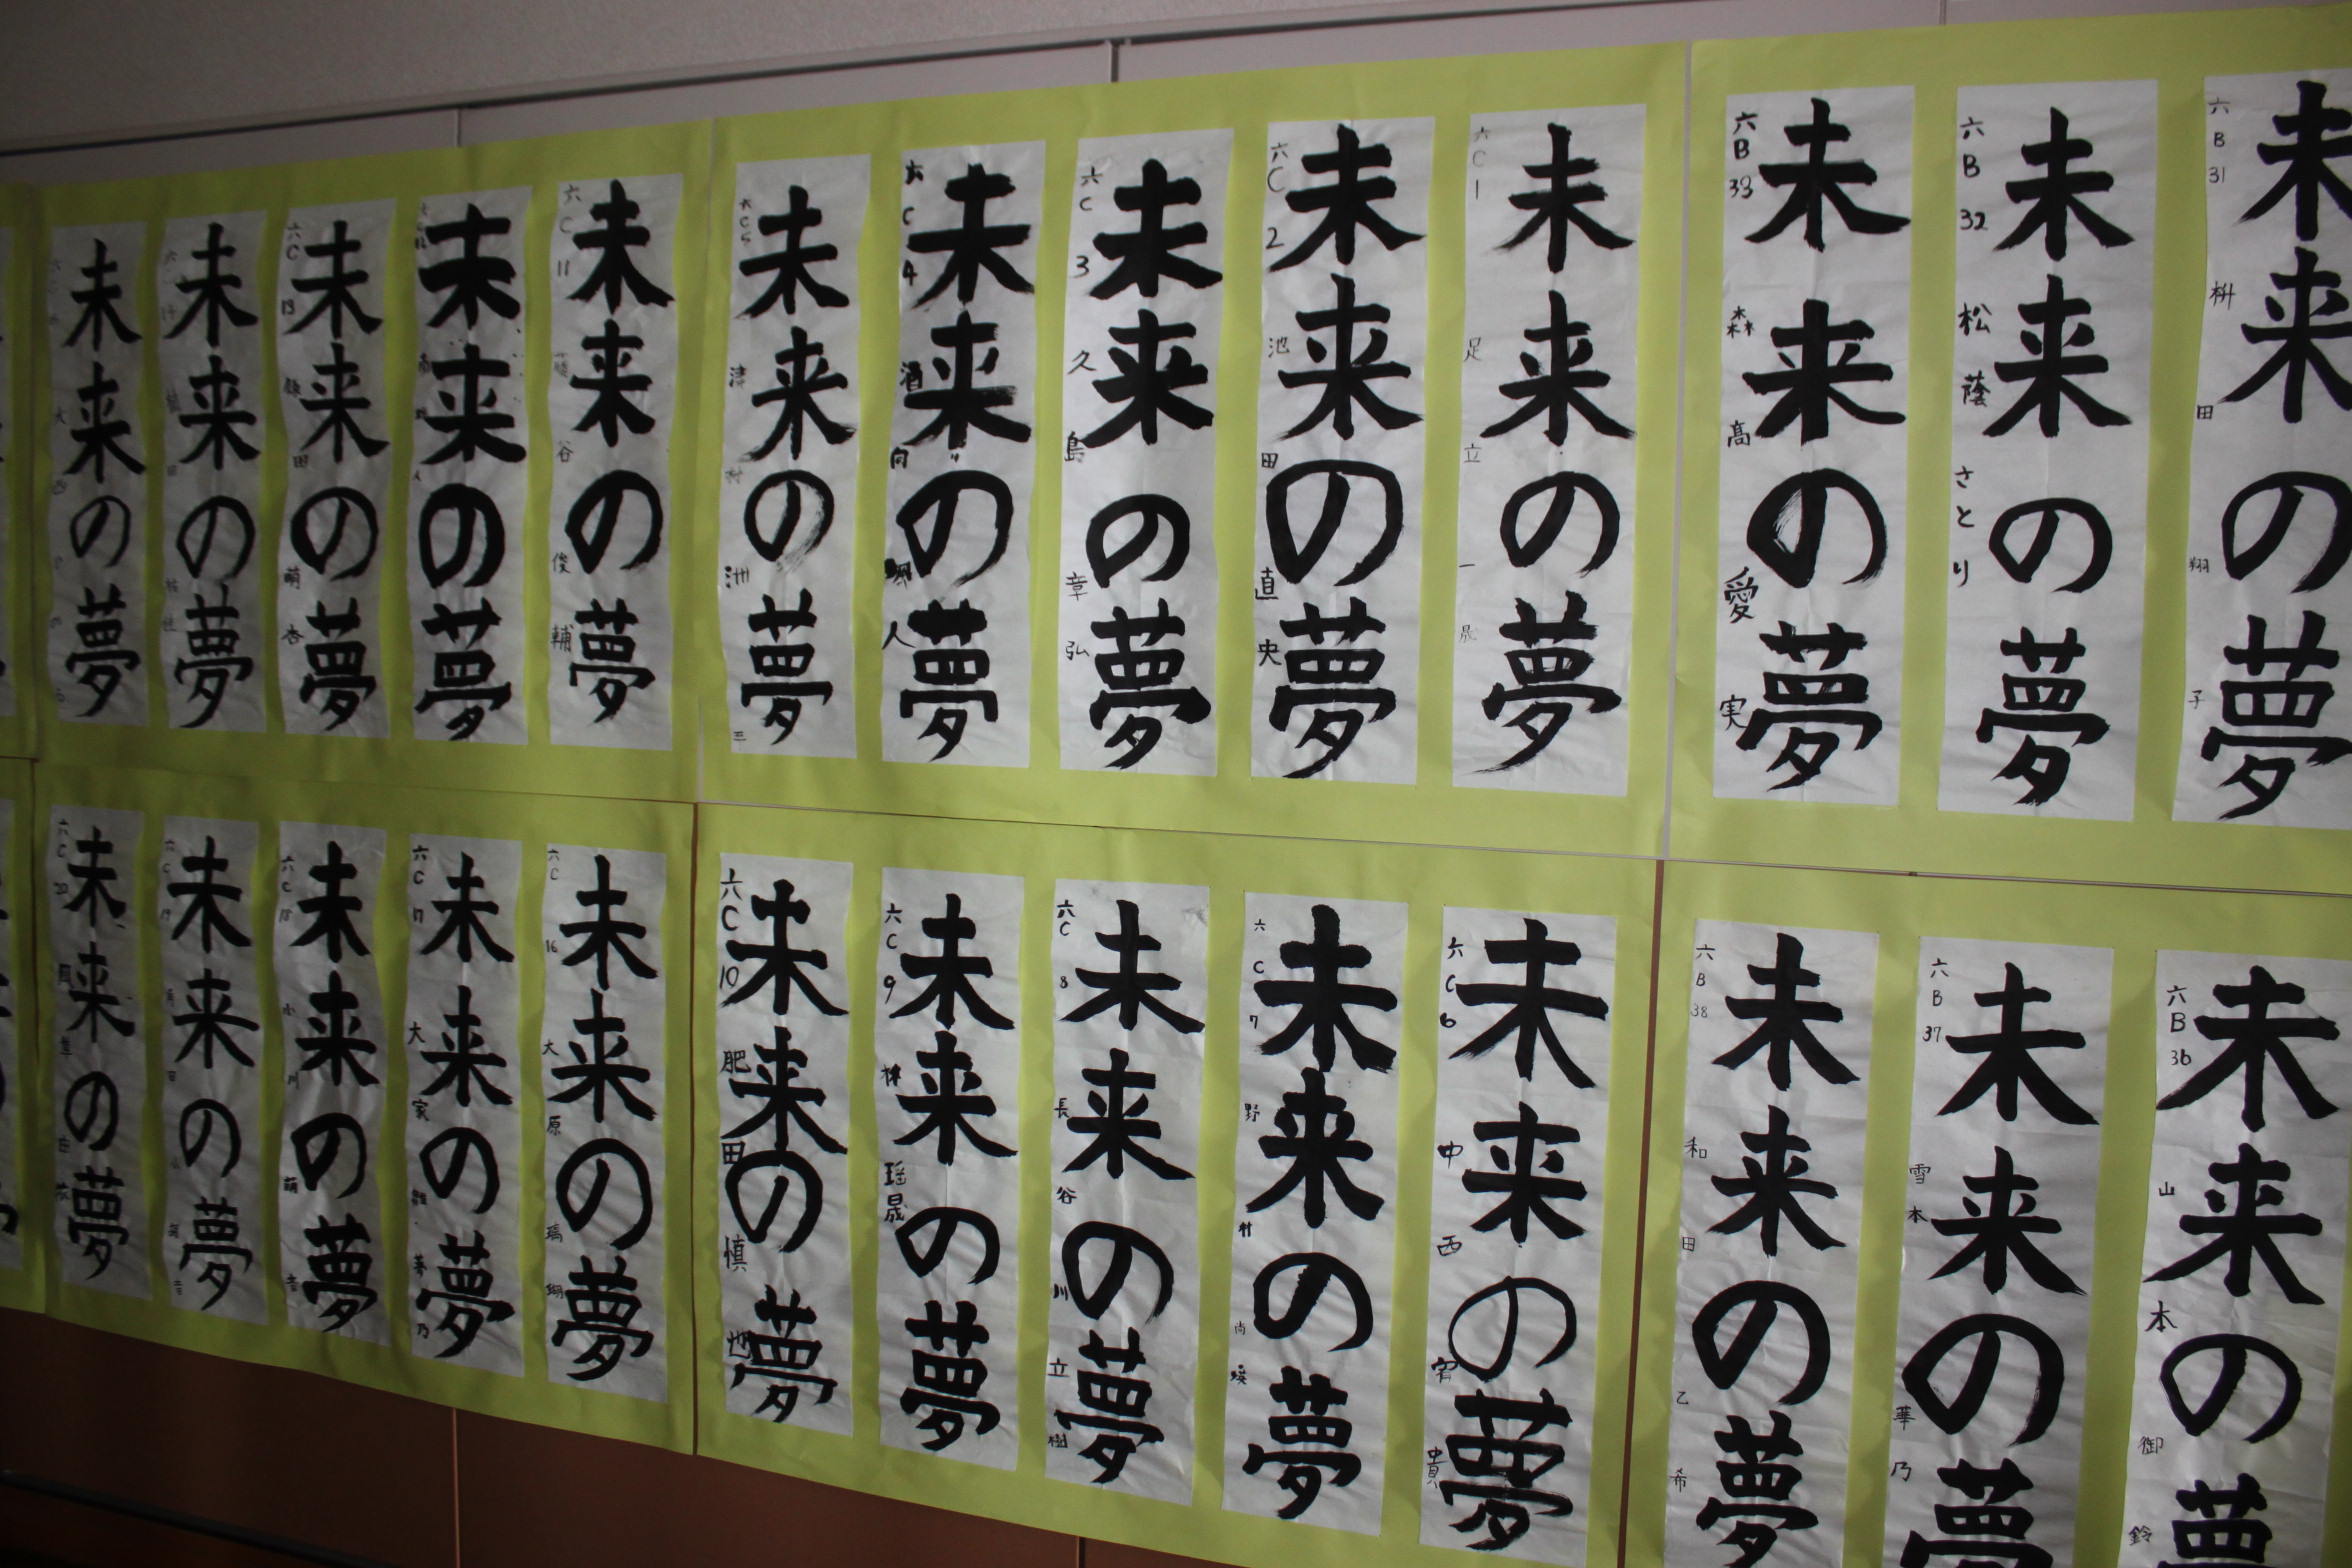 六B31 枡田翔子
未来の夢
六B32 松蔭さとり
未来の夢
六B33 森高愛実
未来の夢
六C1 足立一晟
未来の夢
六C2 池田直央
未来の夢
六C3 久島章弘
未来の夢
六C4 人
未来の夢
六C5 津村洲三
未来の夢
六C11 谷俊輔
未来の夢
未来の夢
六C13 田萌杏
未来の夢
未来の夢
未来の夢
六B36 山本御鈴
未来の夢
六B37 雪本華乃
未来の夢
六B38 和田乙希
未来の夢
六C6 中西宥貴
未来の夢
六C7 野村尚瑛
未来の夢
六C8 長谷川立樹
未来の夢
六C9 林瑶晟
未来の夢
六C10 肥田慎也
未来の夢
六C16 大原璃瑚
未来の夢
六C17 大家乃
未来の夢
六C18 小川萌
未来の夢
六C19
未来の夢
六C20
未来の夢